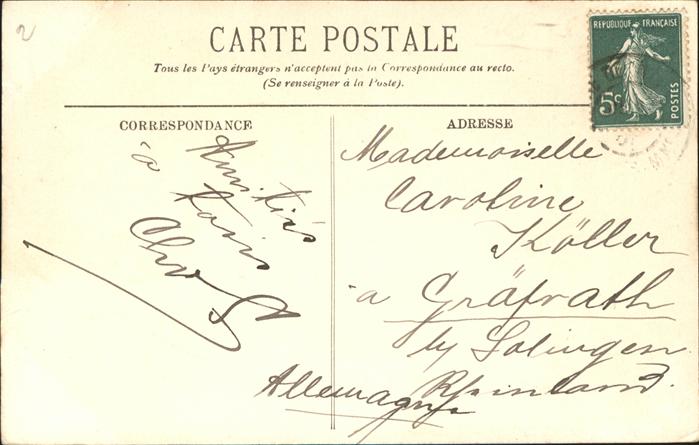 2
CARTE POSTALE
Tous les Pays étrangers n'acceptent pas la Correspondance au recto.
(Se renseigner à la Poste).
RÉPUBLIQUE FRANÇAISE
5c
POSTES
CORRESPONDANCE
Amitiés
à tous
ADRESSE
Mademoiselle
Caroline
Köller
a Gräfrath
by Solingen
Rheinland.
Allemagne